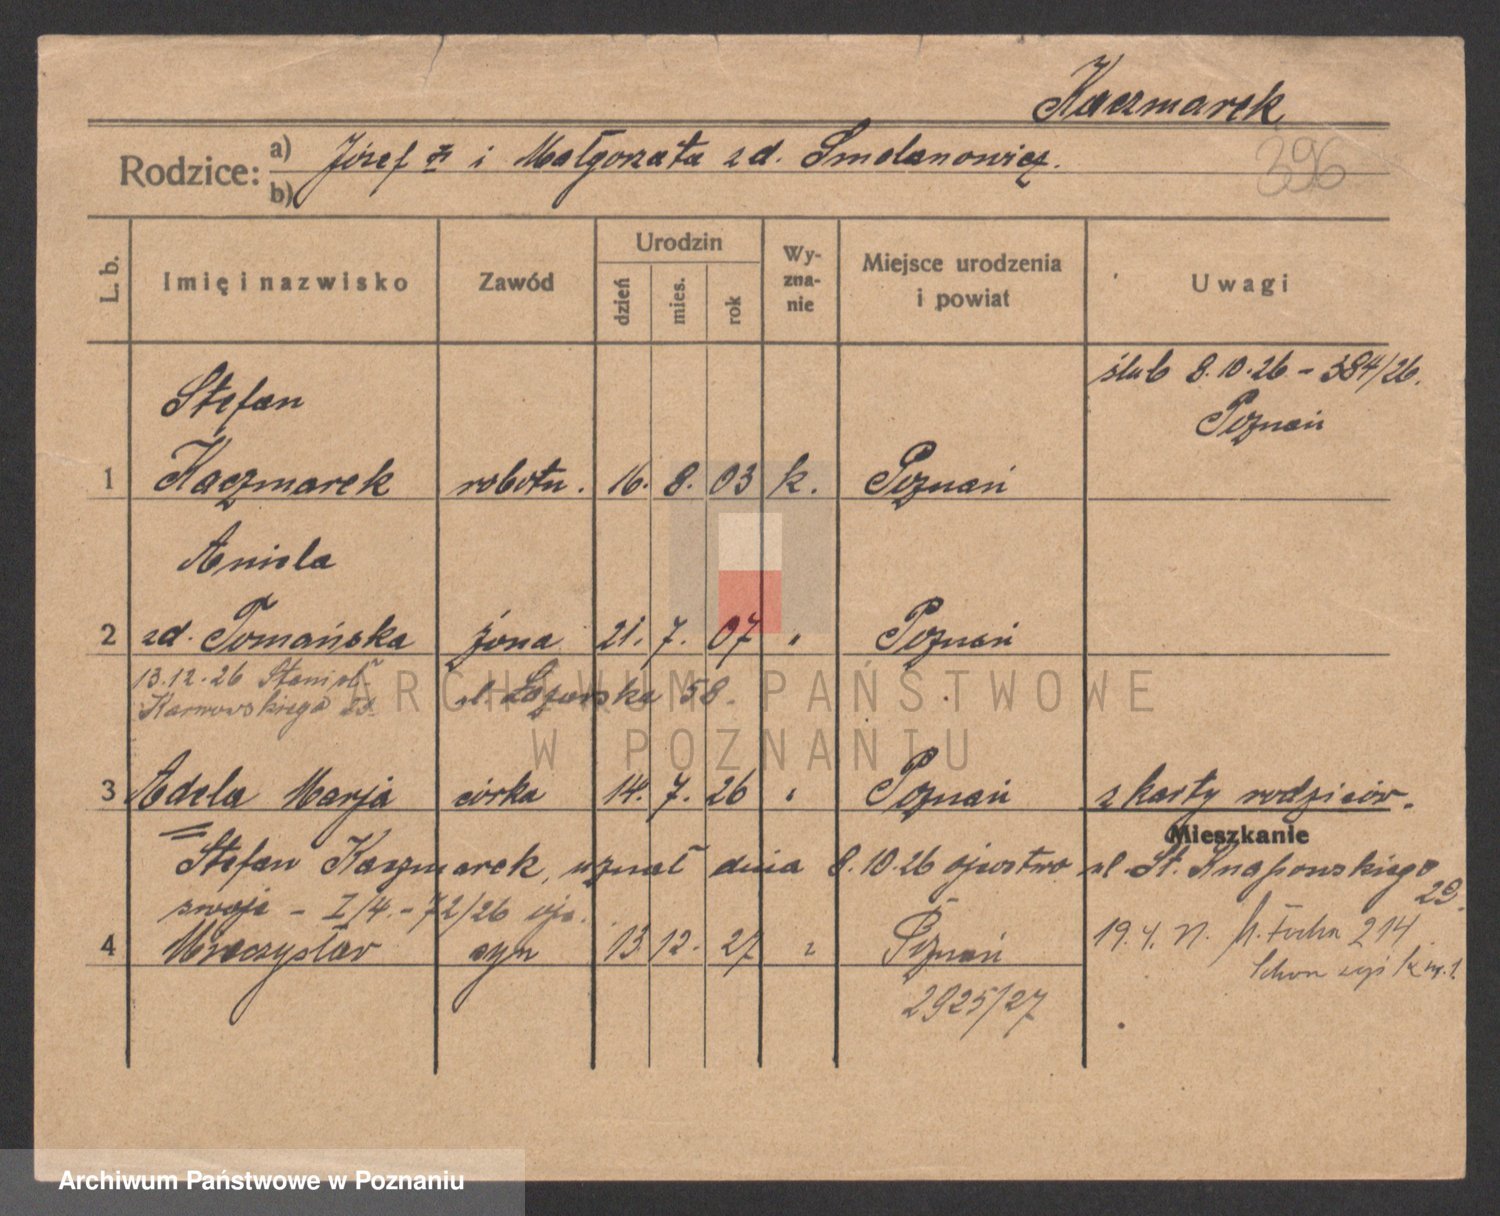 Kaczmarek
396
Rodzice: a) Józef i Małgorzata zd. Smolanowicz.
b)
L. b. Imię i nazwisko Zawód Urodzin dzień mies. rok Wy-zna-nie Miejsce urodzenia i powiat Uwagi
ślub 8.10.26 - 384/26.
Stefan Poznań
1 Kaczmarek robotn. 16. 8. 03 k. Poznań
Aniela
2 zd. Tomańska żona 21. 7. 07 " Poznań
13.12.26
ul. 58.
ARCHIWUM PAŃSTWOWE
W POZNANIU
3 Adela Marja córka 14. 7. 26 " Poznań z karty rodziców.
Mieszkanie
Stefan Kaczmarek, uznał dnia 8.10.26 ojcostwo ul. St. Knapowskiego
swoje - I/4. - 72/26 29.
4 Mieczysław syn 13 12. 27 " Poznań 19.4. Focha 214
2925/27
Archiwum Państwowe w Poznaniu